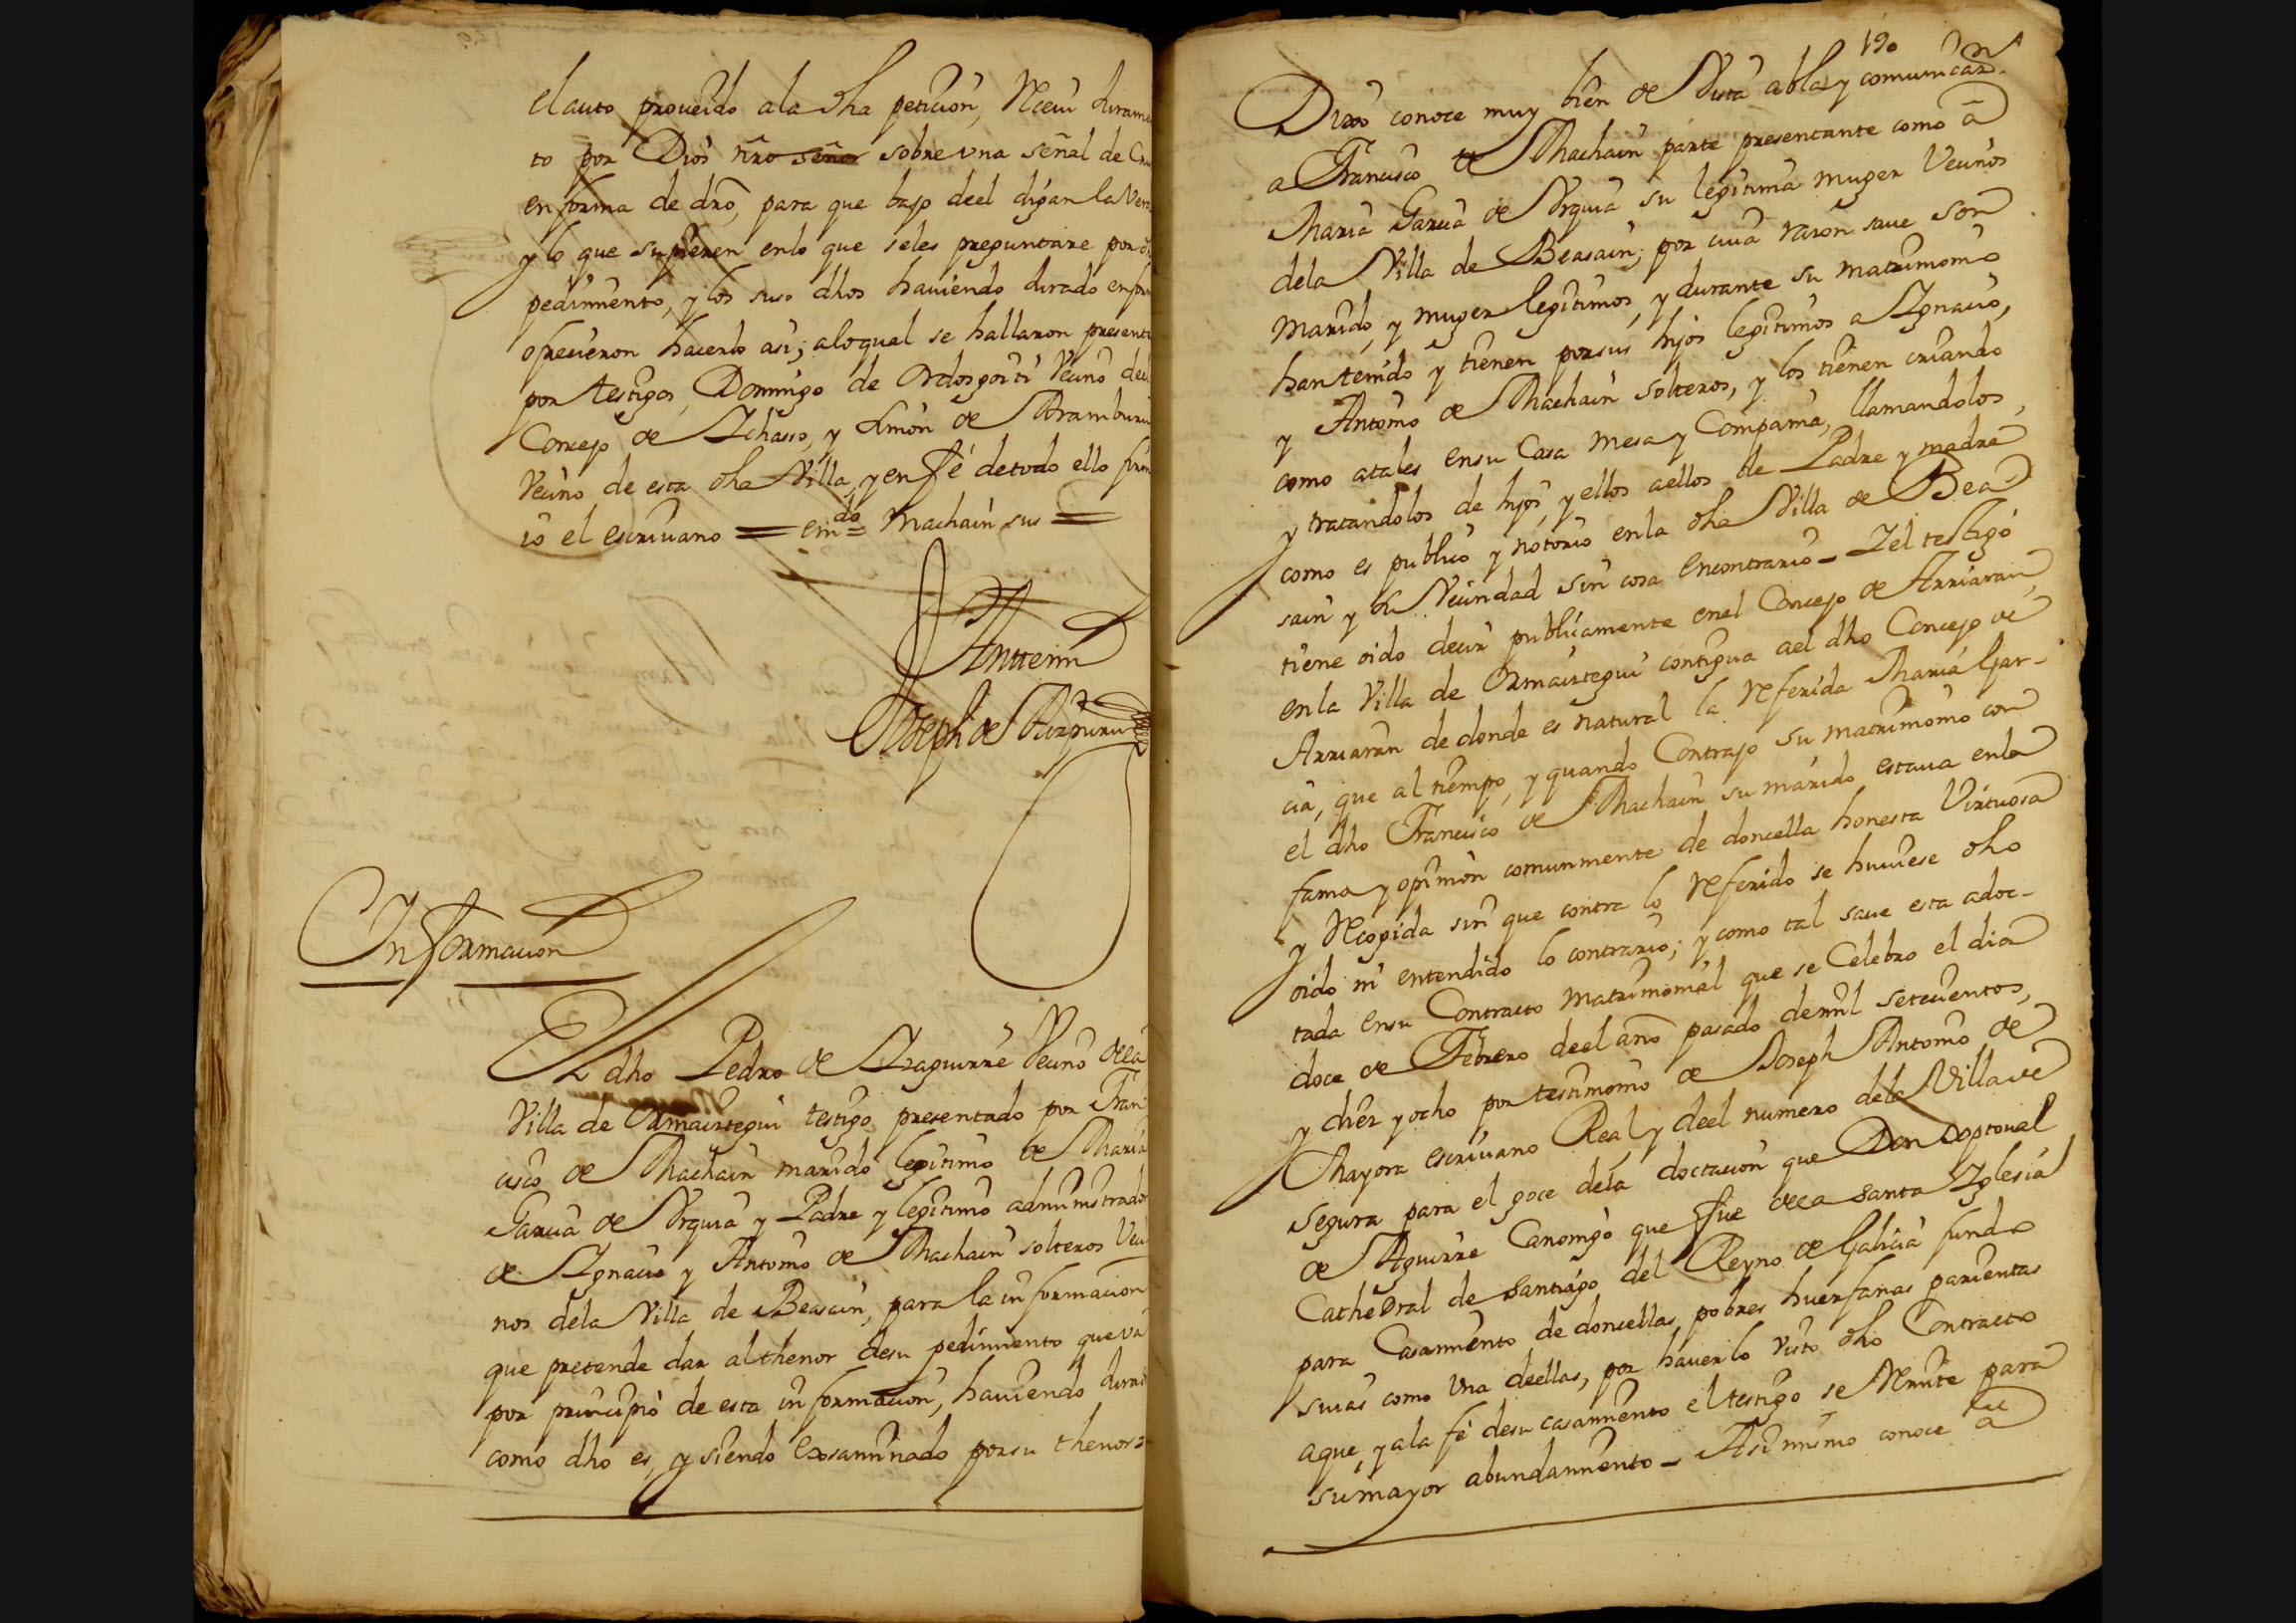 el auto proueido ala dha peticion, Receui Jurame
to por Dios nro señor sobre vna señal de Cru
en forma de dro, para que bajo deel digan la Verd
y lo que supieren enlo que seles preguntare por d
pedimiento, y los suso dhos hauiendo Jurado en for
ofrecieron hacerlo asi; alo qual se hallaron presente
por testigos, Domingo de Ordosgoiti Vecino deel
Concejo de Ichasso, y Simon de Aramburu
Vecino de esta dha Villa, y en fé detodo ello firm
io el escriuano = emdo = Machain sus =
Antemi
Joseph de Aizpuru
Informacion
El dho Pedro de Izaguirre Vecino dela
Villa de Ormaiztegui testigo presentado por Fran
cisco de Machain marido legitimo de Maria
Garcia de Vrquia y Padre y legitimo administrador
de Ignacio y Antonio de Machain solteros Veci
nos dela Villa de Beasain, para la informacion
que pretende dar al thenor desu pedimiento que vá
por principio de esta informacion, hauiendo Jurad
como dho es, y siendo Exsaminado porsu thenor =
190
Dixo conoce muy bien de Vista abla y comunicazn
a Francisco de Machain parte presentante como a
Maria Garcia de Vrquia su legitima muger Vecinos
dela Villa de Beasain; por cuia razon saue son
marido, y muger legitimos, y durante su matrimonio
han tenido y tienen porsus hijos legitimos a Ignacio,
y Antonio de Machain solteros, y los tienen criando
como atales ensu Casa mesa y Compania, llamandolos,
y tratandolos de hijos, y ellos aellos de Padre y madre
como es publico y notorio enla dha Villa de Bea
sain y su Vecindad sin cosa Encontrario - I el testigo
tiene oido decir publicamente enel Concejo de Arriaran
en la Villa de Ormaiztegui contigua ael dho Concejo de
Arriaran de donde es natural la Referida Maria Gar-
cia, que al tiempo, y quando Contrajo su matrimonio con
el dho Francisco de Machain su marido estaua enla
fama y opinion comunmente de doncella honesta Virtuosa
y Recogida sin que contra lo Referido se huuiese dho
oido ni entendido lo contrario; y como tal saue esta adoc-
tada ensu Contracto matrimonial que se Celebro el dia
doce de Febrero deel año pasado demil setecientos,
y diez y ocho por testimonio de Joseph Antonio de
Mayora escriuano Real y deel numero dela Villa de
Segura para el goce dela doctacion que Don Xptoual
de Aguirre Canonigo que fue dela Santa Iglesia
Cathedral de Santiago del Reyno de Galicia fundo
para Casamiento de doncellas pobres huerfanas parientas
suias como Vna deellas, por hauerlo Visto dho Contracto
aque, y ala fé desu casamiento el testigo se Remite para
su mayor abundamiento - Asimismo conoce a